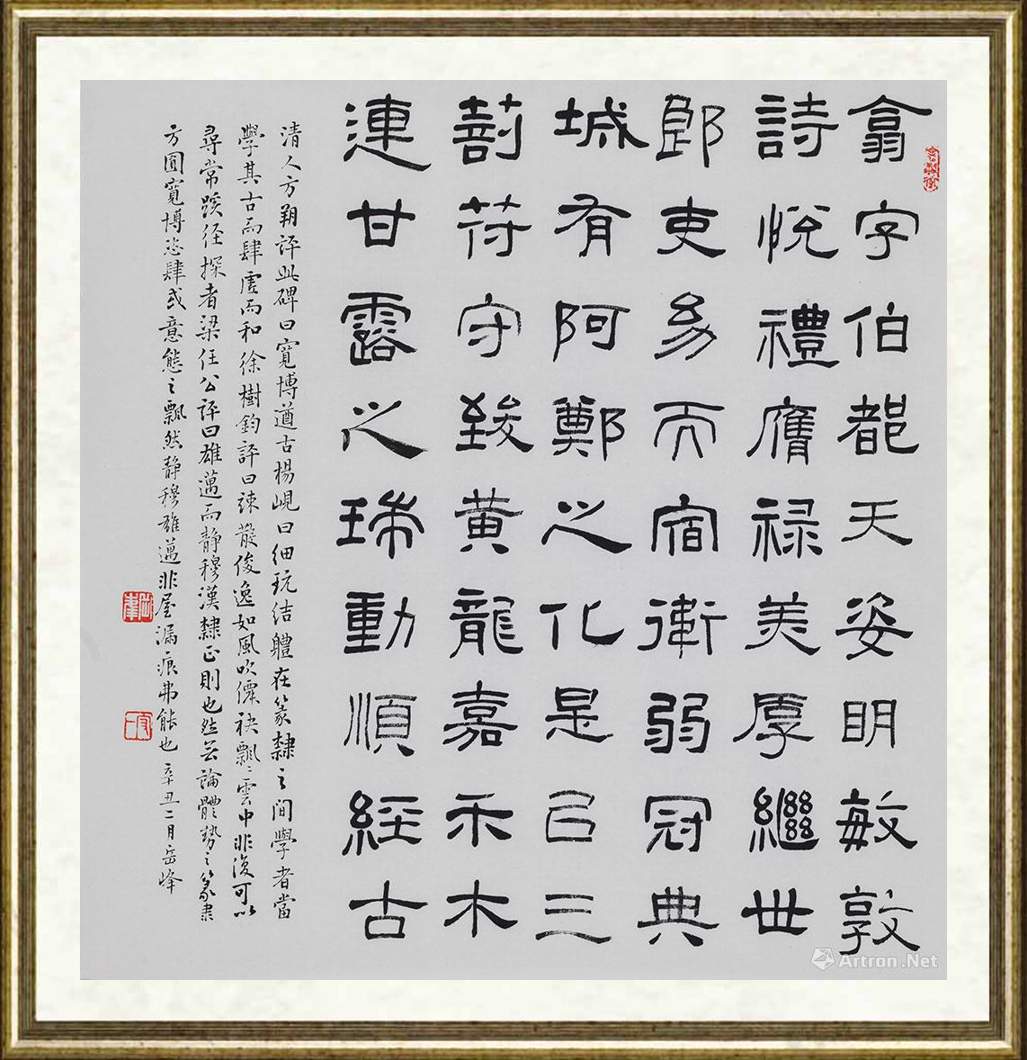 翕字伯都天姿明敏敦
詩悅禮膺禄美厚繼世
郎吏幼而宿衛弱冠典
城有阿鄭之化是㠯三
剖苻守致黄龍嘉禾木
連甘露之瑞動順經古
清人方朔評此碑曰寬博遒古楊峴曰細玩結體在篆隸之間學者當
學其古而肆虛而和徐樹鈞評曰疎散俊逸如風吹僊袂飄〻雲中非復可以
尋常蹊径探者梁任公評曰雄邁而静穆漢隸正則也然無論體勢之篆隸
方圓寬博恣肆或意態之飄然静穆雄邁非屋漏痕弗能也 辛丑二月岳峰
Artron.Net